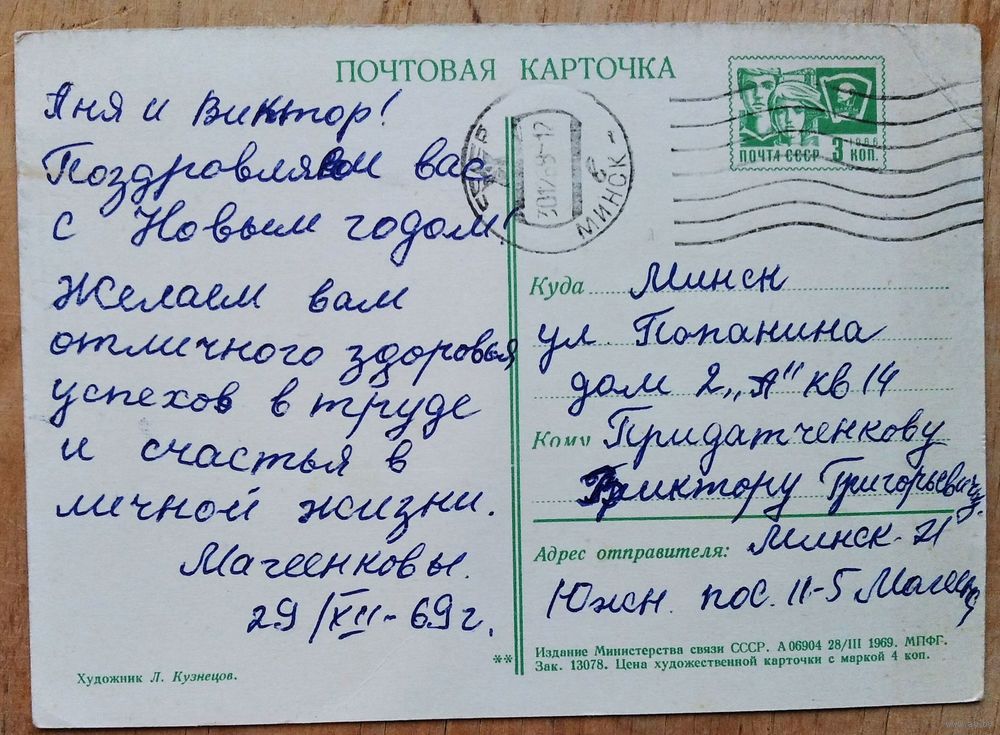 ПОЧТОВАЯ КАРТОЧКА
Аня и Виктор!
Поздравляем вас
с Новым годом!
Желаем вам
отличного здоровья
успехов в труде
и счастья в
личной жизни.
Магеенковы.
29/XII-69г.
Художник Л. Кузнецов.
**
МИНСК
ПОЧТА СССР 3 КОП.
1966
Куда Минск
ул. Попанина
дом 2 „А" кв 14
Кому Придатченкову
Виктору Григорьевичу
Адрес отправителя: Минск-21
Южн. пос. 11-5
Издание Министерства связи СССР. А 06904 28/III 1969. МПФГ.
Зак. 13078. Цена художественной карточки с маркой 4 коп.